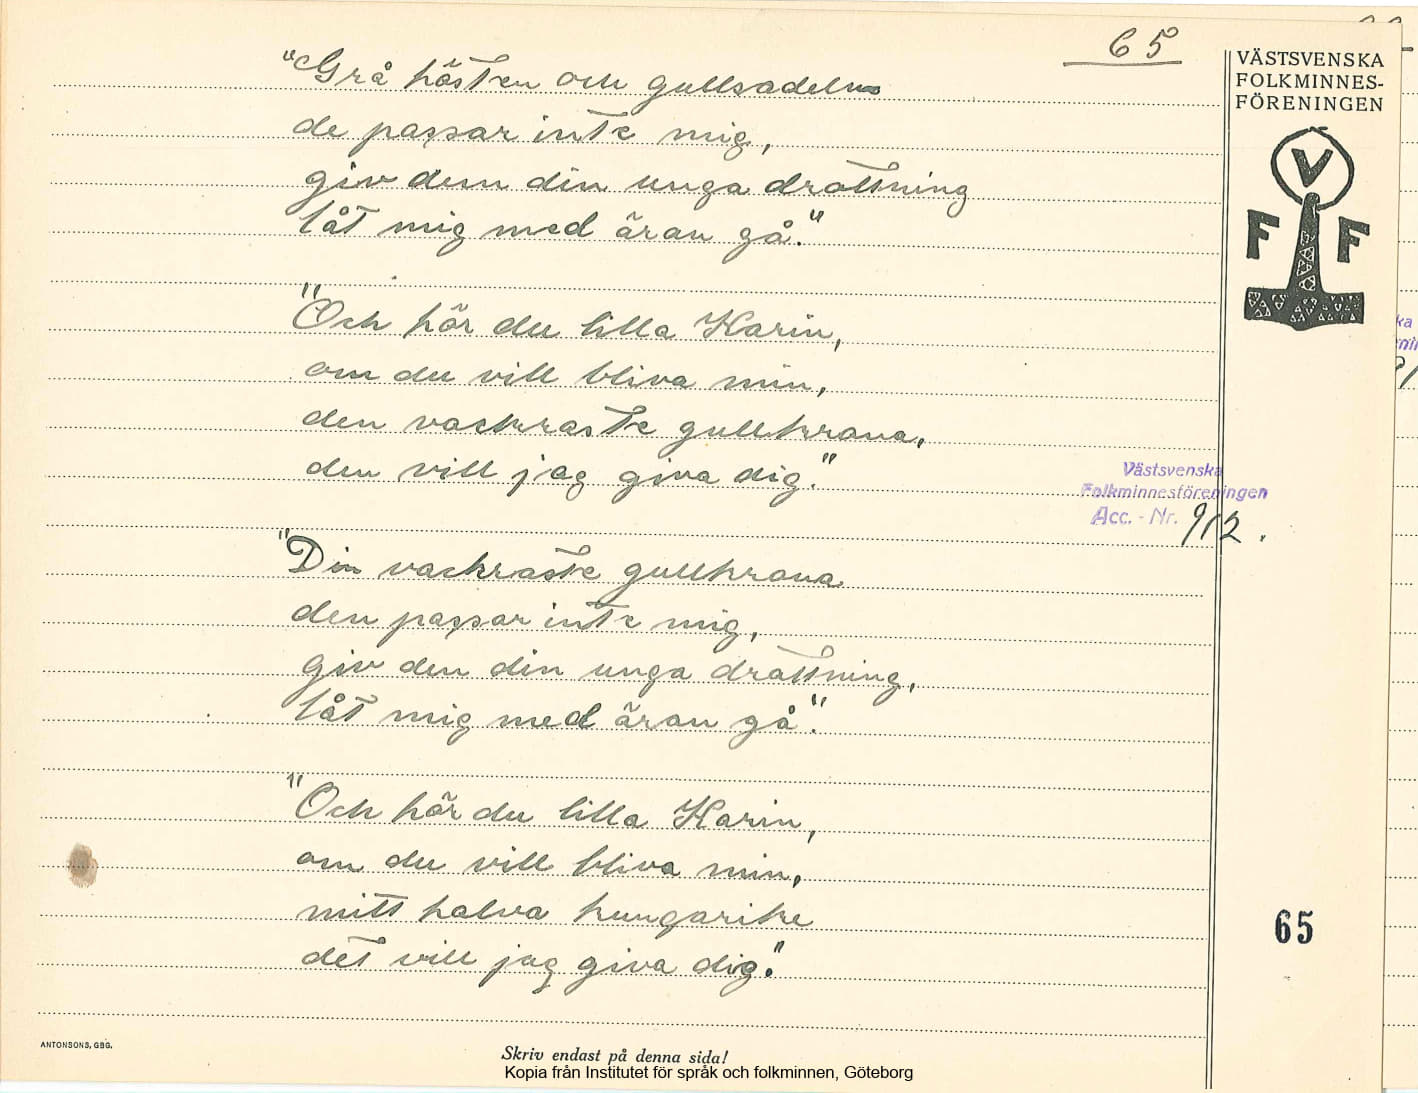 65
"Grå hästen och gullsadeln
de passar inte mig,
giv dem din unga drottning
låt mig med äran gå."
"Och hör du lilla Karin,
om du vill bliva min,
den vackraste gullkrona,
den vill jag giva dig."
"Din vackraste gullkrona
den passar inte mig,
giv den din unga drottning,
låt mig med äran gå".
"Och hör du lilla Karin,
om du vill bliva min,
mitt halva kungarike
det vill jag giva dig."
VÄSTSVENSKA
FOLKMINNES-
FÖRENINGEN
V
F F
Västsvenska
Folkminnesföreningen
Acc. - Nr. 912.
65
ANTONSONS, GBG.
Skriv endast på denna sida!
Kopia från Institutet för språk och folkminnen, Göteborg